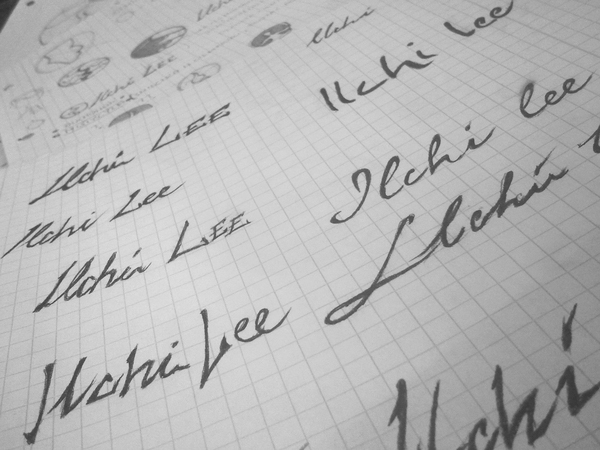 Ilchi
Ilchi Lee
Ilchi
Ilchi Lee
Ilchi LEE
Ilchi Lee
Ilchi LEE
Ilchi Lee
Ilchi Lee
Ilchi Lee
Ilchi
Ilchi